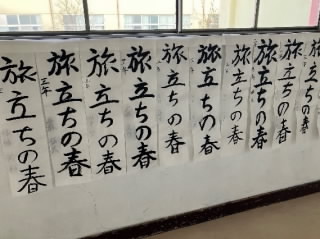 旅立ちの春
旅立ちの春
旅立ちの春
旅立ちの春
旅立ちの春
旅立ちの春
旅立ちの春
旅立ちの春
旅立ちの春
旅立ちの春